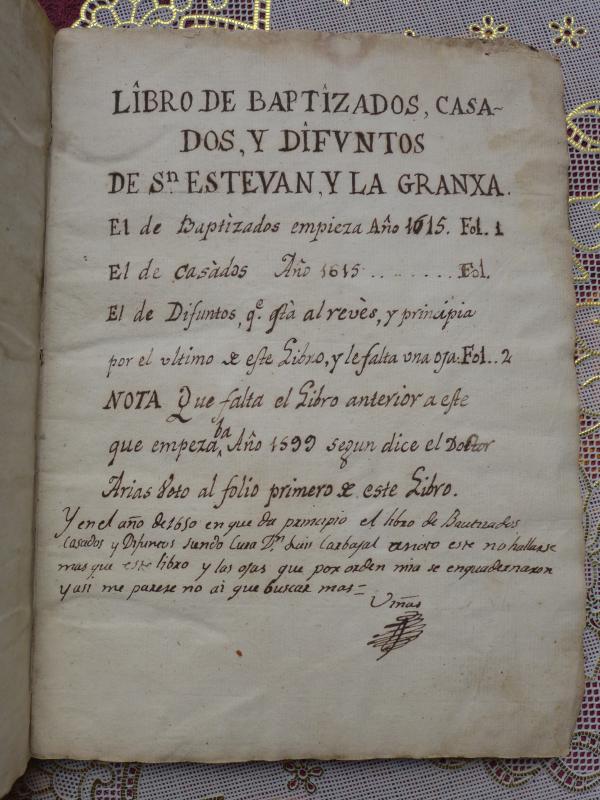 LÎBRO DE BAPTÎZADOS, CASA-
DOS, Y DÎFVNTOS
DE Sn. ESTEVAN, Y LA GRANXA.
El de Baptizados empieza Año 1615. Fol. 1
El de casàdos Año 1615 . . . . . . . . . Fol.
El de Difuntos, qe. està al revès, y principia
por el vltimo de este Libro, y le falta vna oja. Fol. . 2
NOTA Que falta el Libro anterior a este
que empezaba Año 1599 segun dice el Doctor
Arias Voto al folio primero de este Libro.
Y en el año de 1650 en que da principio el libro de Bautizados
Casados y Difuntos siendo Cura Dn. Luis Carbajal este no hallarse
mas que este libro y las ojas que por orden mia se enquadernaron
y asi me parese no ai que buscar mas =
Viñas